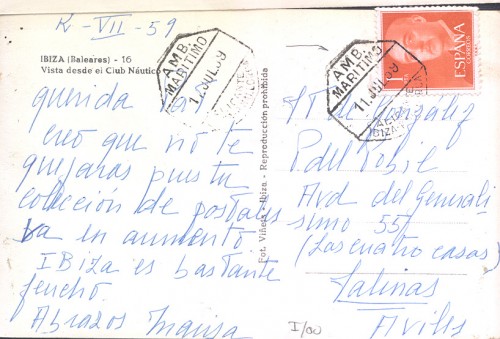 K-VII-59
IBIZA (Baleares) - 16
Vista desde el Club Náutico
querida
creo que no te
quejaras pues tu
colección de postales
va en aumento
IBIZA es bastante
feucho.
Abrazos Marisa
Fot. Viñets - Ibiza. - Reproducción prohibida
AMB.
MARITIMO
11.JUL.59
AMB.
MARITIMO
11.JUL.59
1
ESPAÑA
CORREOS
de González
P. del Rebil
Avd del Generali
simo 55
(Las cuatro casas)
Salinas
Aviles
I/00